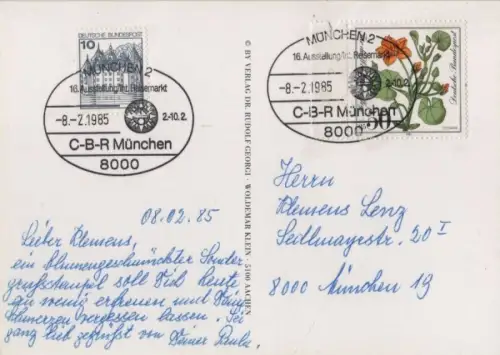 DEUTSCHE BUNDESPOST
10
MÜNCHEN 2
16. Ausstellung Int. Reisemarkt
-8.-2.1985
2-10.2.
C-B-R München
8000
MÜNCHEN 2
16. Ausstellung Int. Reisemarkt
-8.-2.1985
2-10.2.
C-B-R München
8000
50
Deutsche Bundespost
© BY VERLAG DR. RUDOLF GEORGI · WOLDEMAR KLEIN · 5100 AACHEN
08.02.85
Lieber Klemens,
ein blumengeschmückter Sonder-
grußstempel soll Dich heute
zu wenig erfreuen und Deine
Schmerzen vergessen lassen. Sei
ganz lieb gegrüßt von Deiner
Herrn
Klemens Lenz
Seidlmayrstr. 20 I
8000 München 19